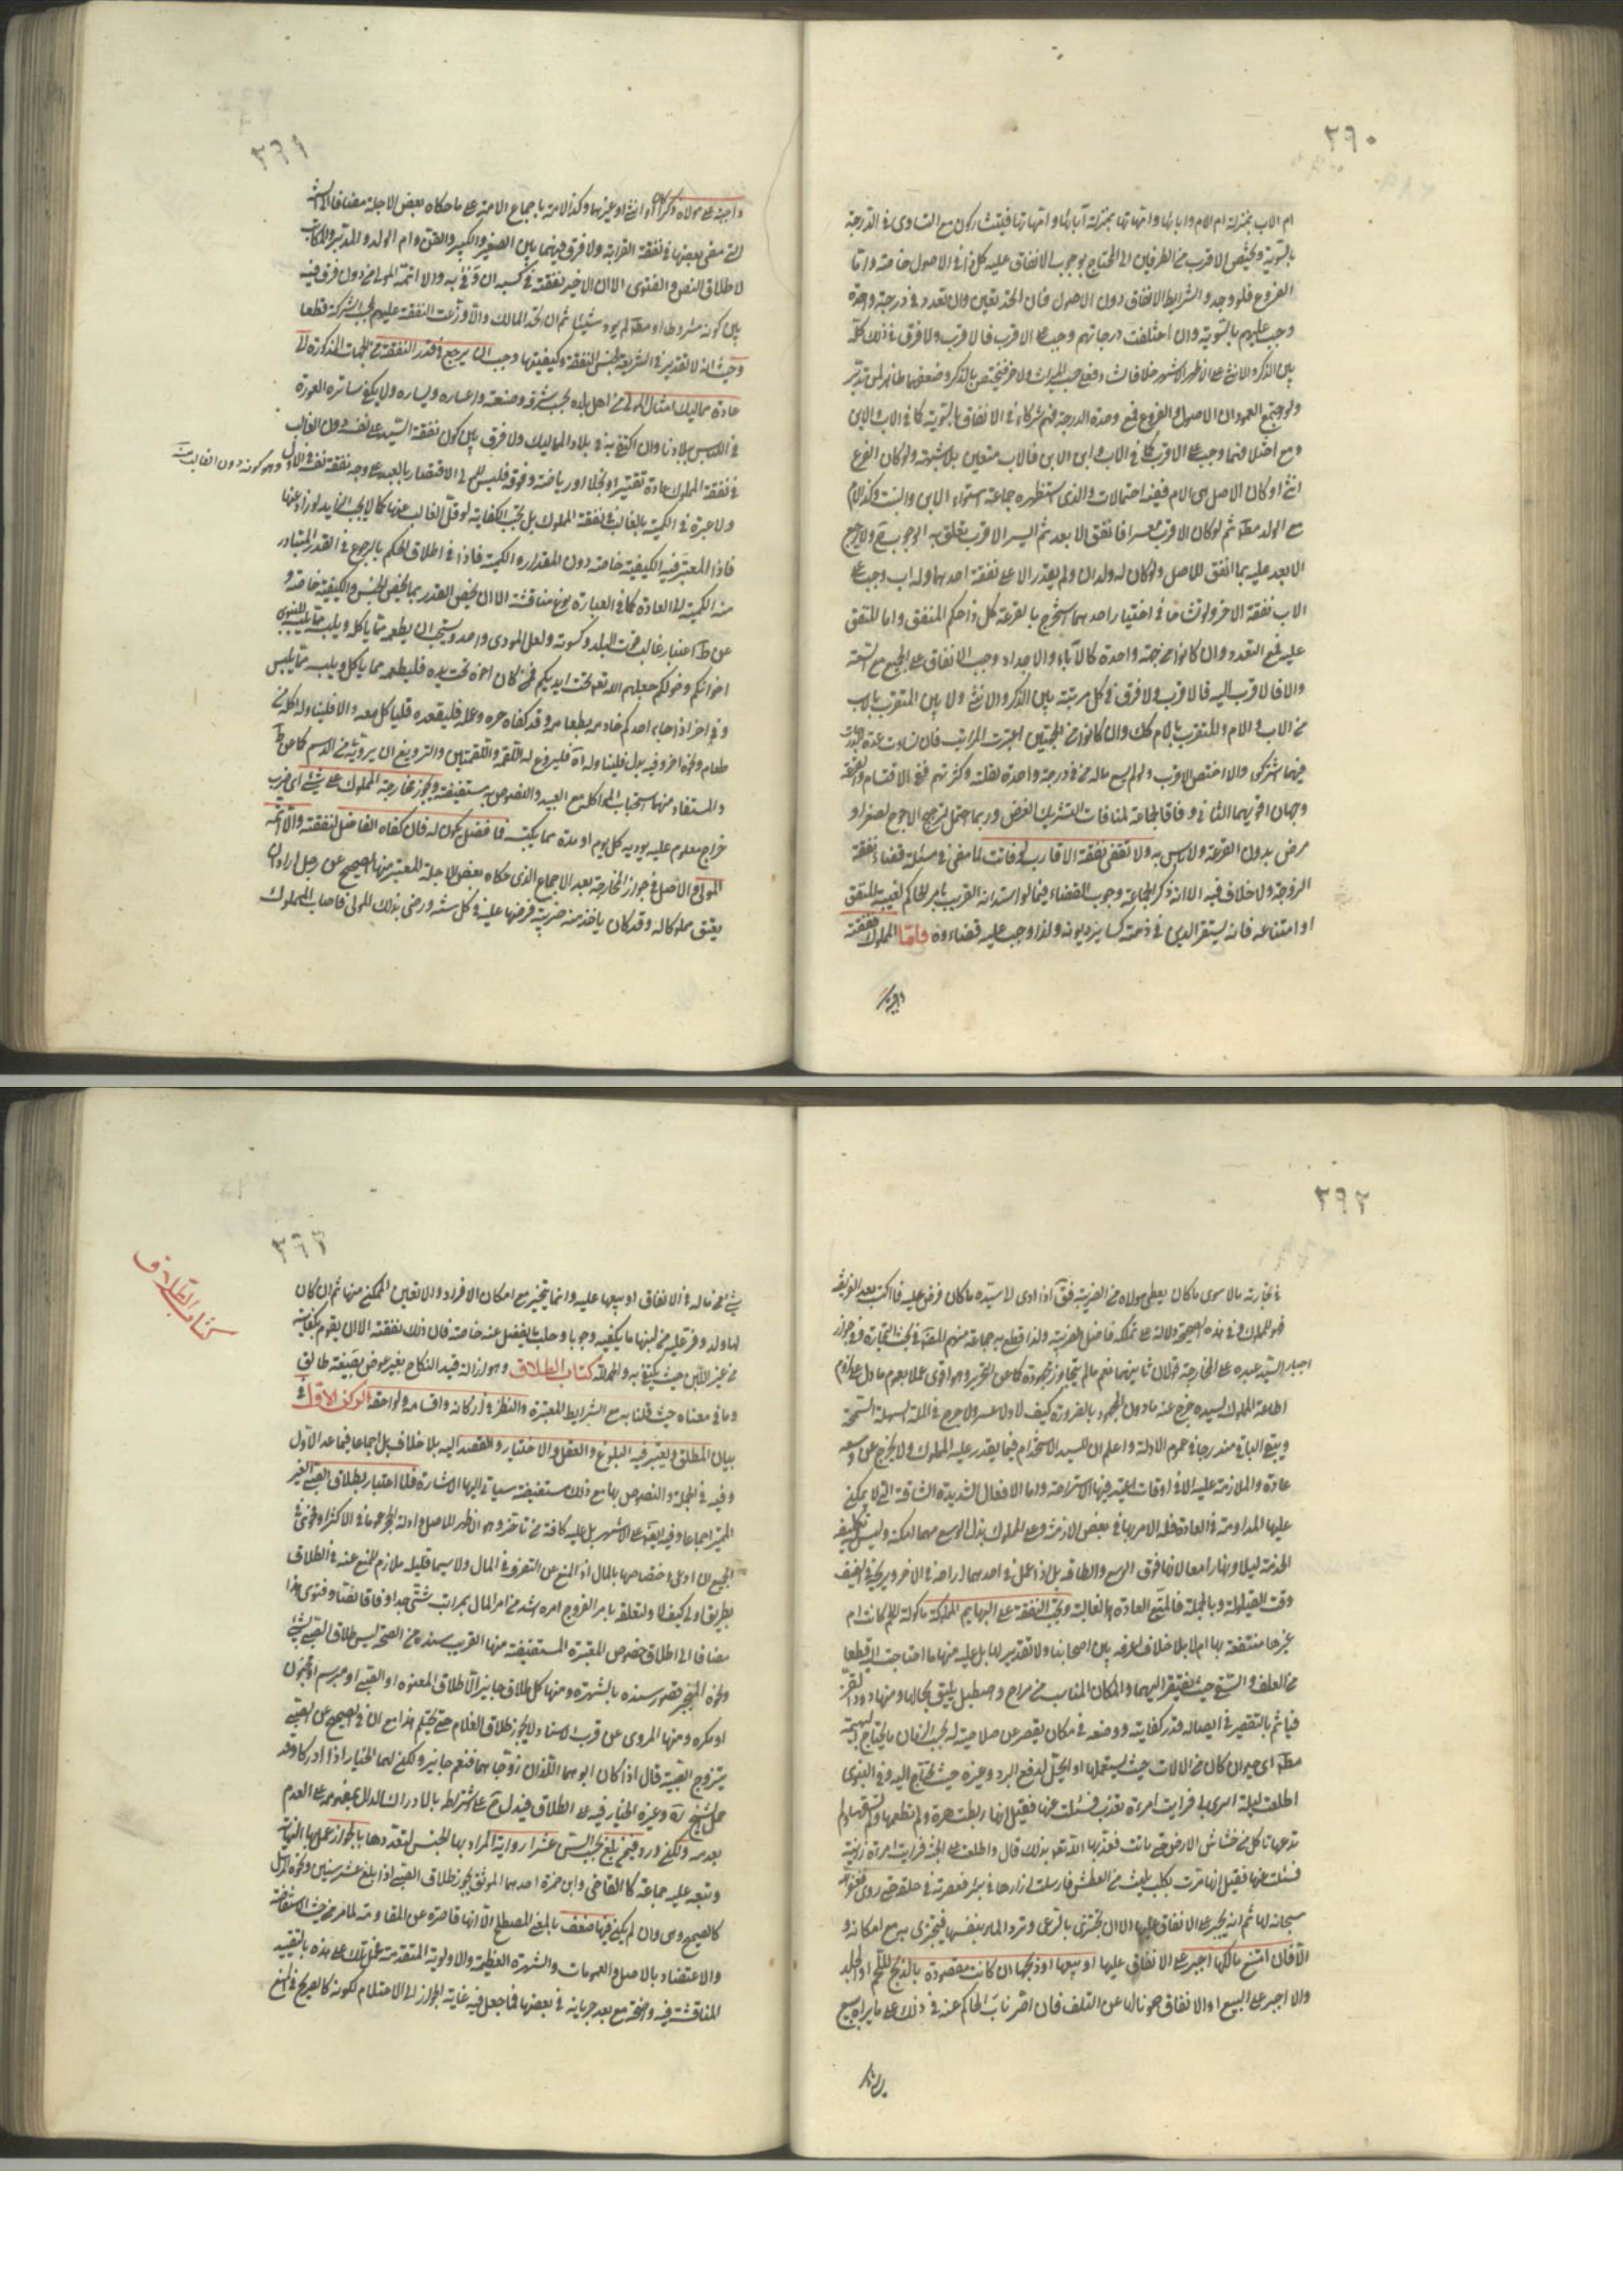 ٢٩٠
ام الاب بمنزلة ام الام وابائها وامهاتها بمنزلة آبائها وامهاتها فيتشاركون مع التساوي في الدرجة
بالسوية ويختص الاقرب من الطرفين الى المحتاج بوجوب الانفاق عليه كل ذا في الاصول خاصة واما
الفروع فلو وجد والشرايط الانفاق دون الاصول فان اتحد تعين وان تعدد في درجة واحدة
وجب عليهم بالسوية وان اختلفت درجاتهم وجب على الاقرب فالاقرب ولا فرق في ذلك كله
بين الذكر والانثى على الاظهر الاشهر خلافا
ولو اجتمع العمودان الاصول والفروع فمع وحدة الدرجة فهم شركاء في الانفاق بالسوية كما في الاب والابن
ومع اختلافها وجب على الاقرب كما في الاب وابن الابن فالاب متعين بلا شبهة ولو كان الفرع
انثى او كان الاصل هي الام ففيه احتمالات والذي استظهره جماعة استواء الابن والبنت وكذا الام
مع الولد مطلقا ثم لو كان الاقرب معسرا فانفق الابعد ثم ايسر الاقرب تعلق به الوجوب ح ولا يرجع
الابعد عليه بما انفق للاصل ولو كان له ولدان ولم يقدر الا على نفقة احدهما وله اب وجب على
الاب نفقة الاخر ولو تشاحا في اختيار احدهما استخرج بالقرعة كل ذا حكم المنفق واما المنفق
عليه فمع التعدد وان كانوا من جهة واحدة كالآباء والاجداد وجب الانفاق على الجميع مع السعة
والا فالاقرب اليه فالاقرب ولا فرق في كل مرتبة بين الذكر والانثى ولا بين المتقرب بالاب
من الاب والام والمتقرب بالام كك وان كانوا من الجهتين اعتبرت المراتب فان تساوت عدة
فيهما اشتركوا والا اختص الاقرب ولو لم يسع ماله من في درجة واحدة لقلته وكثرتهم ففي الاقتسام والقرعة
وجهان اقويهما الثاني وفاقا لجماعة لمنافات التشريك الغرض وربما احتمل ترجيح الاحوج لصغر او
مرض بدون القرعة ولا باس به ولا تقضى نفقة الاقارب لو فاتت لما مضى في مسئلة قضاء نفقة
الزوجة ولا خلاف فيه الا انه ذكر الجماعة وجوب القضاء فيما لو استدانه القريب بامر الحاكم لغيبة المنفق
او امتناعه فانه يستقر الدين في ذمته كساير ديونه ولذا وجب عليه قضاءه واما المملوك فنفقته
واجبة
٢٩١
واجبة على مولاه ذكرا كان او انثى او غيرهما وكذا الامة باجماع الامة على ما حكاه بعض الاجلة مضافا الى
التي مضى بعضها في نفقة القرابة ولا فرق فيهما بين الصغير والكبير والقن وام الولد والمدبر والمكاتب
لاطلاق النص والفتوى الا ان الاخير نفقته في كسبه ان وفى به والا اتمه المولى من دون فرق فيه
بين كونه مشروطا او مطلقا لم يود شيئا ثم ان اتحد المالك والا وزعت النفقة عليهم بحسب الشركة قطعا
وحيث انه لا تقدير في الشريعة لجنس النفقة وكيفيتها وجب ان يرجع في قدر النفقة من الجهات المذكورة الى
عادة مماليك امثال المولى من اهل بلده بحسب شرفه وضعته واعساره ويساره ولا يكفي ساتر العورة
في اللباس ببلادنا وان اكتفي به في بلاد المماليك ولا فرق بين كون نفقة السيد على نفسه دون الغالب
في نفقة المملوك عادة تقتيرا او بخلا او رياضة وفوقه فليس له الاقتصار بالعبد على وجه نفقة نفسه في الاول وهو كونه دون الغالب منه
ولا عبرة في الكمية بالغالب في نفقة المملوك بل تجب الكفاية لو قل الغالب عنها كما لا يجب الزايد لو زاد عنها
فاذا المعتبر فيه الكيفية خاصة دون المقدار والكمية فاذا في اطلاق الحكم بالرجوع في القدر المتبادر
منه الكمية الى العادة كما في العبارة نوع مناقشة الا ان يخص القدر بما يخص الجنس والكيفية خاصة و
عن ط اعتبار غالب قوت البلد وكسوته ولعل المودى واحد ويستحب ان يطعمه مما ياكله ويلبسه مما يلبسه للنبوي
اخوانكم وخولكم جعلهم الله تعالى تحت ايديكم فمن كان اخوه تحت يده فليطعمه مما ياكل ويلبسه مما يلبس
وفي اخر اذا جاء احدكم خادمه بطعامه وقد كفاه حره وعمله فليقعده فليأكل معه والا فليناوله اكلة من
طعام ونحوه اخر وفيه بدل فليناوله اه فليروغ له اللقمة واللقمتين والترويغ ان يرويه من الدسم كما عن ط
والمستفاد منهما استحباب المواكلة مع العبيد والنصوص به مستفيضة ويجوز مخارجة المملوك على شيء اي ضرب
خراج معلوم عليه يوديه كل يوم او مدة مما يكتسب فما فضل يكون له فان كفاه الفاضل لنفقته والا اتمه
المولى والاصل في جواز المخارجة بعد الاجماع الذي حكاه بعض الاجلة المعتبر منها الصحيح عن رجل اراد ان
يعتق مملوكا له وقد كان ياخذ منه ضريبة فرضها عليه في كل سنة ورضي بذلك المولى فاصاب المملوك
٢٩٢
في تجارته مالا سوى ما كان يعطي مولاه من الضريبة فقال اذا ادى الى سيده ما كان فرض عليه فما اكتسب بعد الفريضة
فهو للمملوك وفي هذه الصحيحة دلالة على تملكه فاضل الضريبة ولذا قطع به جماعة منهم المصنف في بحث التجارة وفي جواز
اجبار السيد عبده على المخارجة قولان ثانيهما نعم ما لم يتجاوز مجهوده كما عن التحرير وهو اقوى عملا بعموم ما دل على لزوم
اطاعة المملوك لسيده خرج عنه ما دون المجهود بالضرورة كيف لا ولا عسر ولا حرج في الملة السهلة السمحة
ويبقى الباقي مندرجا في عموم الادلة واعلم ان للسيد الاستخدام فيما يقدر عليه المملوك ولا يخرج عن وسعه
عادة والملازمة عليه الا في اوقات اعتيد فيها الاستراحة واما الافعال الشديدة الشاقة التي لا يمكن
عليها المداومة في العادة فله الامر بها في بعض الازمنة وعلى المملوك بذل الوسع مهما امكنه وليس تكليفه
الخدمة ليلا ونهارا معا لانهما فوق الوسع والطاقة بل اذا عمل في احدهما اراحه في الاخر ويريحه في الصيف
وقت القيلولة وبالجملة فالمتبع العادة الغالبة وتجب النفقة على البهايم المملوكة ماكولة اللحم كانت ام
غيرها منتفعة بها ام لا بلا خلاف اعرفه بين اصحابنا ولا تقدير لها بل عليه منها ما احتاجت اليه قطعا
من العلف والسقي حيث تفتقر اليهما والمكان المناسب من مراح واصطبل يليق بحالها ومنها دود القز
فياثم بالتقصير في ايصاله قدر كفايته ووضعه في مكان يقصر عن صلاحيته له بحسب الزمان ما يحتاج البهيمة
مطلقا اي حيوان كان من الالات حيث يستعملها او الجل لدفع البرد وغيره حيث يحتاج اليه وفي النبوي
اطلعت ليلة اسري بي فرايت امراة تعذب فسئلت عنها فقيل انها ربطت هرة ولم تطعمها ولم تسقها ولم
تدعها تاكل من خشاش الارض حتى ماتت فعذبها الله تعالى بذلك قال واطلعت على الجنة فرايت امراة زانية
فسئلت عنها فقيل انها مرت بكلب يلهث من العطش فارسلت ازارها في بئر فعصرته في حلقه حتى روى فغفر الله
سبحانه لها ثم انه يجبر على الانفاق عليها الا ان تجتزي بالرعي وترد الماء بنفسها فيجتزي به مع امكانه و
الا فان امتنع مالكها اجبر على الانفاق عليها او بيعها او ذبحها ان كانت مقصودة بالذبح للحم او الجلد
والا اجبر على البيع او الانفاق صونا لها عن التلف فان اصر ناب الحاكم عنه في ذلك على ما يراه ببيع
٢٩٣
كتاب الطلاق
شيء من ماله في الانفاق او بيعها عليه وانما يتخير مع امكان الافراد والا تعين الممكن منها ثم ان كان
لها ولد وفر عليه من لبنها ما يكفيه وجوبا وحلب ما يفضل عنه خاصة فان ذلك نفقته الا ان يقوم بكفايته
من غير اللبن حيث يكتفي به والحمد لله كتاب الطلاق وهو ازالة قيد النكاح بغير عوض بصيغة طالق
وما في معناه حيث قلنا به مع الشرايط المعتبرة والنظر في اركانه واقسامه ولواحقه الركن الاول في
بيان المطلق ويعتبر فيه البلوغ والعقل والاختيار والقصد اليه بلا خلاف بل اجماعا فيما عدا الاول
وفيه في الجملة والنصوص بها مع ذلك مستفيضة سياتي اليها الاشارة فلا اعتبار بطلاق الصبي الغير
المميز اجماعا وفيه ايضا على الاشهر بل عليه كافة من تاخر وهو الاظهر للاصل وادلة الحجر عموما في الاكثر او فحوى في
الجميع ان ادعي اختصاصها بالمال اذ المنع عن التصرف في المال ولا سيما قليله ملازم للمنع عنه في الطلاق
بطريق اولى كيف لا ولتعلقه بامر الفروج امره اشد من امر المال بمراتب شتى جدا وفاقا لفتاوي
مضافا الى اطلاق خصوص المعتبرة المستفيضة منها القريب سنده من الصحة ليس طلاق الصبي بشيء
ونحوه المنجبر قصور سنده بالشهرة ومنها كل طلاق جايز الا طلاق المعتوه او الصبي او مبرسم او مجنون
او مكره ومنها المروي عن قرب الاسناد لا يجوز طلاق الغلام حتى يحتلم هذا مع ان في الصحيح عن الصبي
يتزوج الصبية قال اذا كان ابوهما اللذان زوجاهما فنعم جايز ولكن لهما الخيار اذا ادركا وقد
حمل الشيخ ره وغيره الخيار فيه على الطلاق فيدل ح على اشتراطه بالادراك الدال بمفهومه على العدم
بعدمه ولكن ورد فيمن بلغ بحسب السن عشرا رواية المراد بها الجنس لتعددها بالجواز عمل بها النهاية
وتبعه عليه جماعة كالقاضي وابن حمزة احدهما الموثق يجوز طلاق الصبي اذا بلغ عشر سنين ونحوه المرسل
كالصحيح وهي وان لم يكن فيها ضعف بالمعنى المصطلح الا انها قاصرة عن المقاومة لما مر من حيث الاستفاضة
والاعتضاد بالاصل والعمومات والشهرة العظيمة والاولوية المتقدمة فحمل تلك على هذه بالتقييد
المناقشة فيه واضحة مع بعد جريانه في بعضها مما جعل فيه غاية الجواز الى الاحتلام لكونه كالصريح في المنع